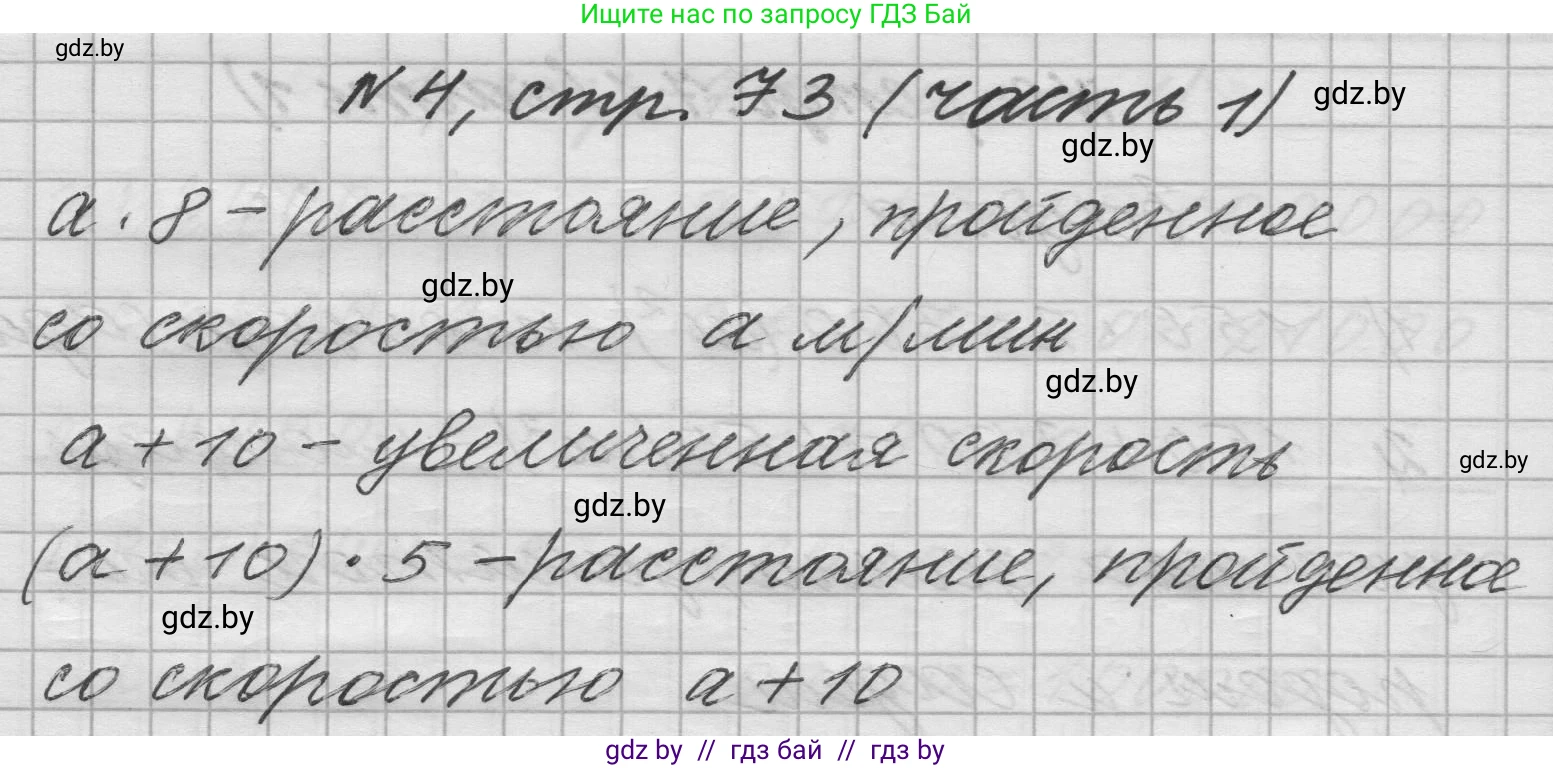 Ищите нас по запросу ГДЗ Бай
gdz.by
N 4, стр. 73 (часть 1)
gdz.by
gdz.by
a · 8 – расстояние, пройденное
gdz.by
со скоростью a м/мин
gdz.by
a + 10 – увеличенная скорость
gdz.by
gdz.by
(a + 10) · 5 – расстояние, пройденное
gdz.by
со скоростью a + 10
gdz by // гдз бай // гдз by